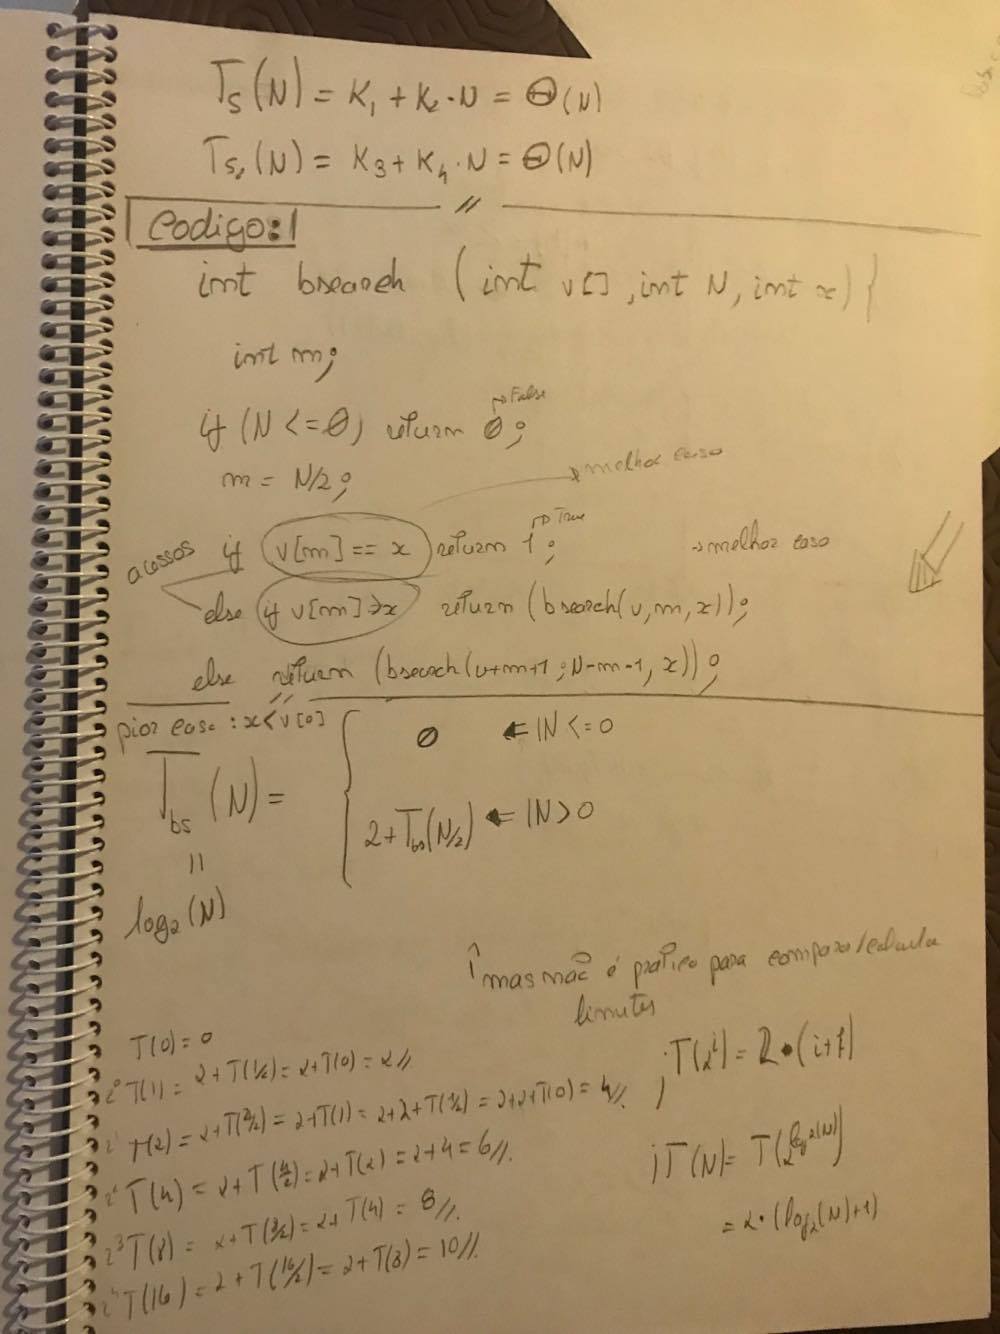 T_s(N) = K₁ + K₂·N = Θ(N)
T_s₂(N) = K₃ + K₄·N = Θ(N)
//
codigo:1
int bsearch (int v[], int N, int x) {
int m;
if (N <= 0) return 0; → False
m = N/2; → melhor caso
acessos if (v[m] == x) return 1; → True → melhor caso
else (if v[m] > x return (bsearch(v, m, x));
else return (bsearch(v+m+1; N-m-1, x));
//
pior caso : x < v[0]
T_bs (N) = { 0 ⇐ N <= 0
2 + T_bs(N/2) ⇐ N > 0
=
log₂(N)
↑ mas não é prático para compara/calcula
limites
T(0) = 0
2⁰ T(1) = 2 + T(1/2) = 2 + T(0) = 2//
2¹ T(2) = 2 + T(2/2) = 2 + T(1) = 2 + 2 + T(1/2) = 2+2+T(0) = 4//.
2² T(4) = 2 + T(4/2) = 2 + T(2) = 2 + 4 = 6//.
2³ T(8) = 2 + T(8/2) = 2 + T(4) = 8//.
2⁴ T(16) = 2 + T(16/2) = 2 + T(8) = 10//.
; T(2ⁱ) = 2•(i+1)
; T(N) = T(2^log₂(N))
= 2•(log₂(N)+1)